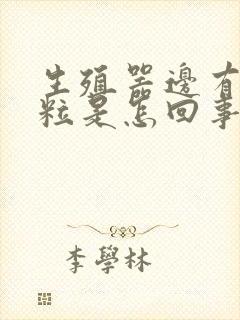 生殖器邊有
粒是怎回事
李學林